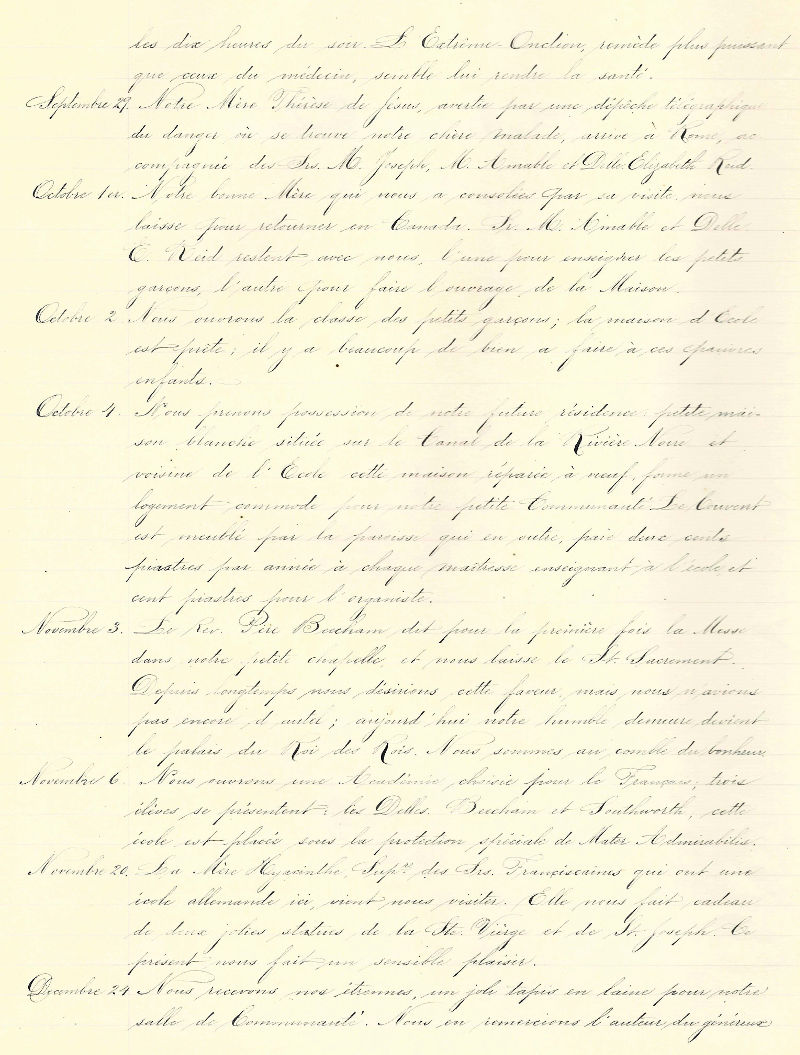 les dix heures du soir. L'Extrême-Onction, remède plus puissant
que ceux du médecin, semble lui rendre la santé.
Septembre 29. Notre Mère Thérèse de Jésus, avertie par une dépêche télégraphique
du danger où se trouve notre chère malade, arrive à Rome, ac
compagnée des Srs. M. Joseph, M. Amable et Delle. Elizabeth Reid.
Octobre 1er. Notre bonne Mère qui nous a consolées par sa visite, nous
laisse pour retourner en Canada. Sr. M. Amable et Delle.
E. Reid restent avec nous, l'une pour enseigner les petits
garçons, l'autre pour faire l'ouvrage de la Maison.
Octobre 2. Nous ouvrons la classe des petits garçons; la maison d'Ecole
est prête; il y a beaucoup de bien à faire à ces pauvres
enfants.
Octobre 4. Nous prenons possession de notre future résidence: petite mai-
son blanche située sur le Canal de la Rivière Noire et
voisine de l'Ecole cette maison réparée à neuf, forme un
logement commode pour notre petite Communauté. Le Couvent
est meublé par la paroisse qui en outre, paie deux cents
piastres par année à chaque maîtresse enseignant à l'école et
cent piastres pour l'organiste.
Novembre 3. Le Rev. Père Beecham dit pour la première fois la Messe
dans notre petite chapelle, et nous laisse le St. Sacrement.
Depuis longtemps nous désirions cette faveur, mais nous n'avions
pas encore d'autel; aujourd'hui notre humble demeure devient
le palais du Roi des Rois. Nous sommes au comble du bonheur.
Novembre 6. Nous ouvrons une Académie choisie pour le Français; trois
élèves se présentent: les Delles. Beecham et Southworth, cette
école est placée sous la protection spéciale de Mater Admirabilis.
Novembre 20. La Mère Hyacinthe, Supre. des Srs. Franciscaines qui ont une
école allemande ici, vient nous visiter. Elle nous fait cadeau
de deux jolies statues de la Ste. Vierge et de St. Joseph. Ce
présent nous fait un sensible plaisir.
Décembre 24 Nous recevons nos étrennes, un joli tapis en laine pour notre
salle de Communauté. Nous en remercions l'auteur du généreux